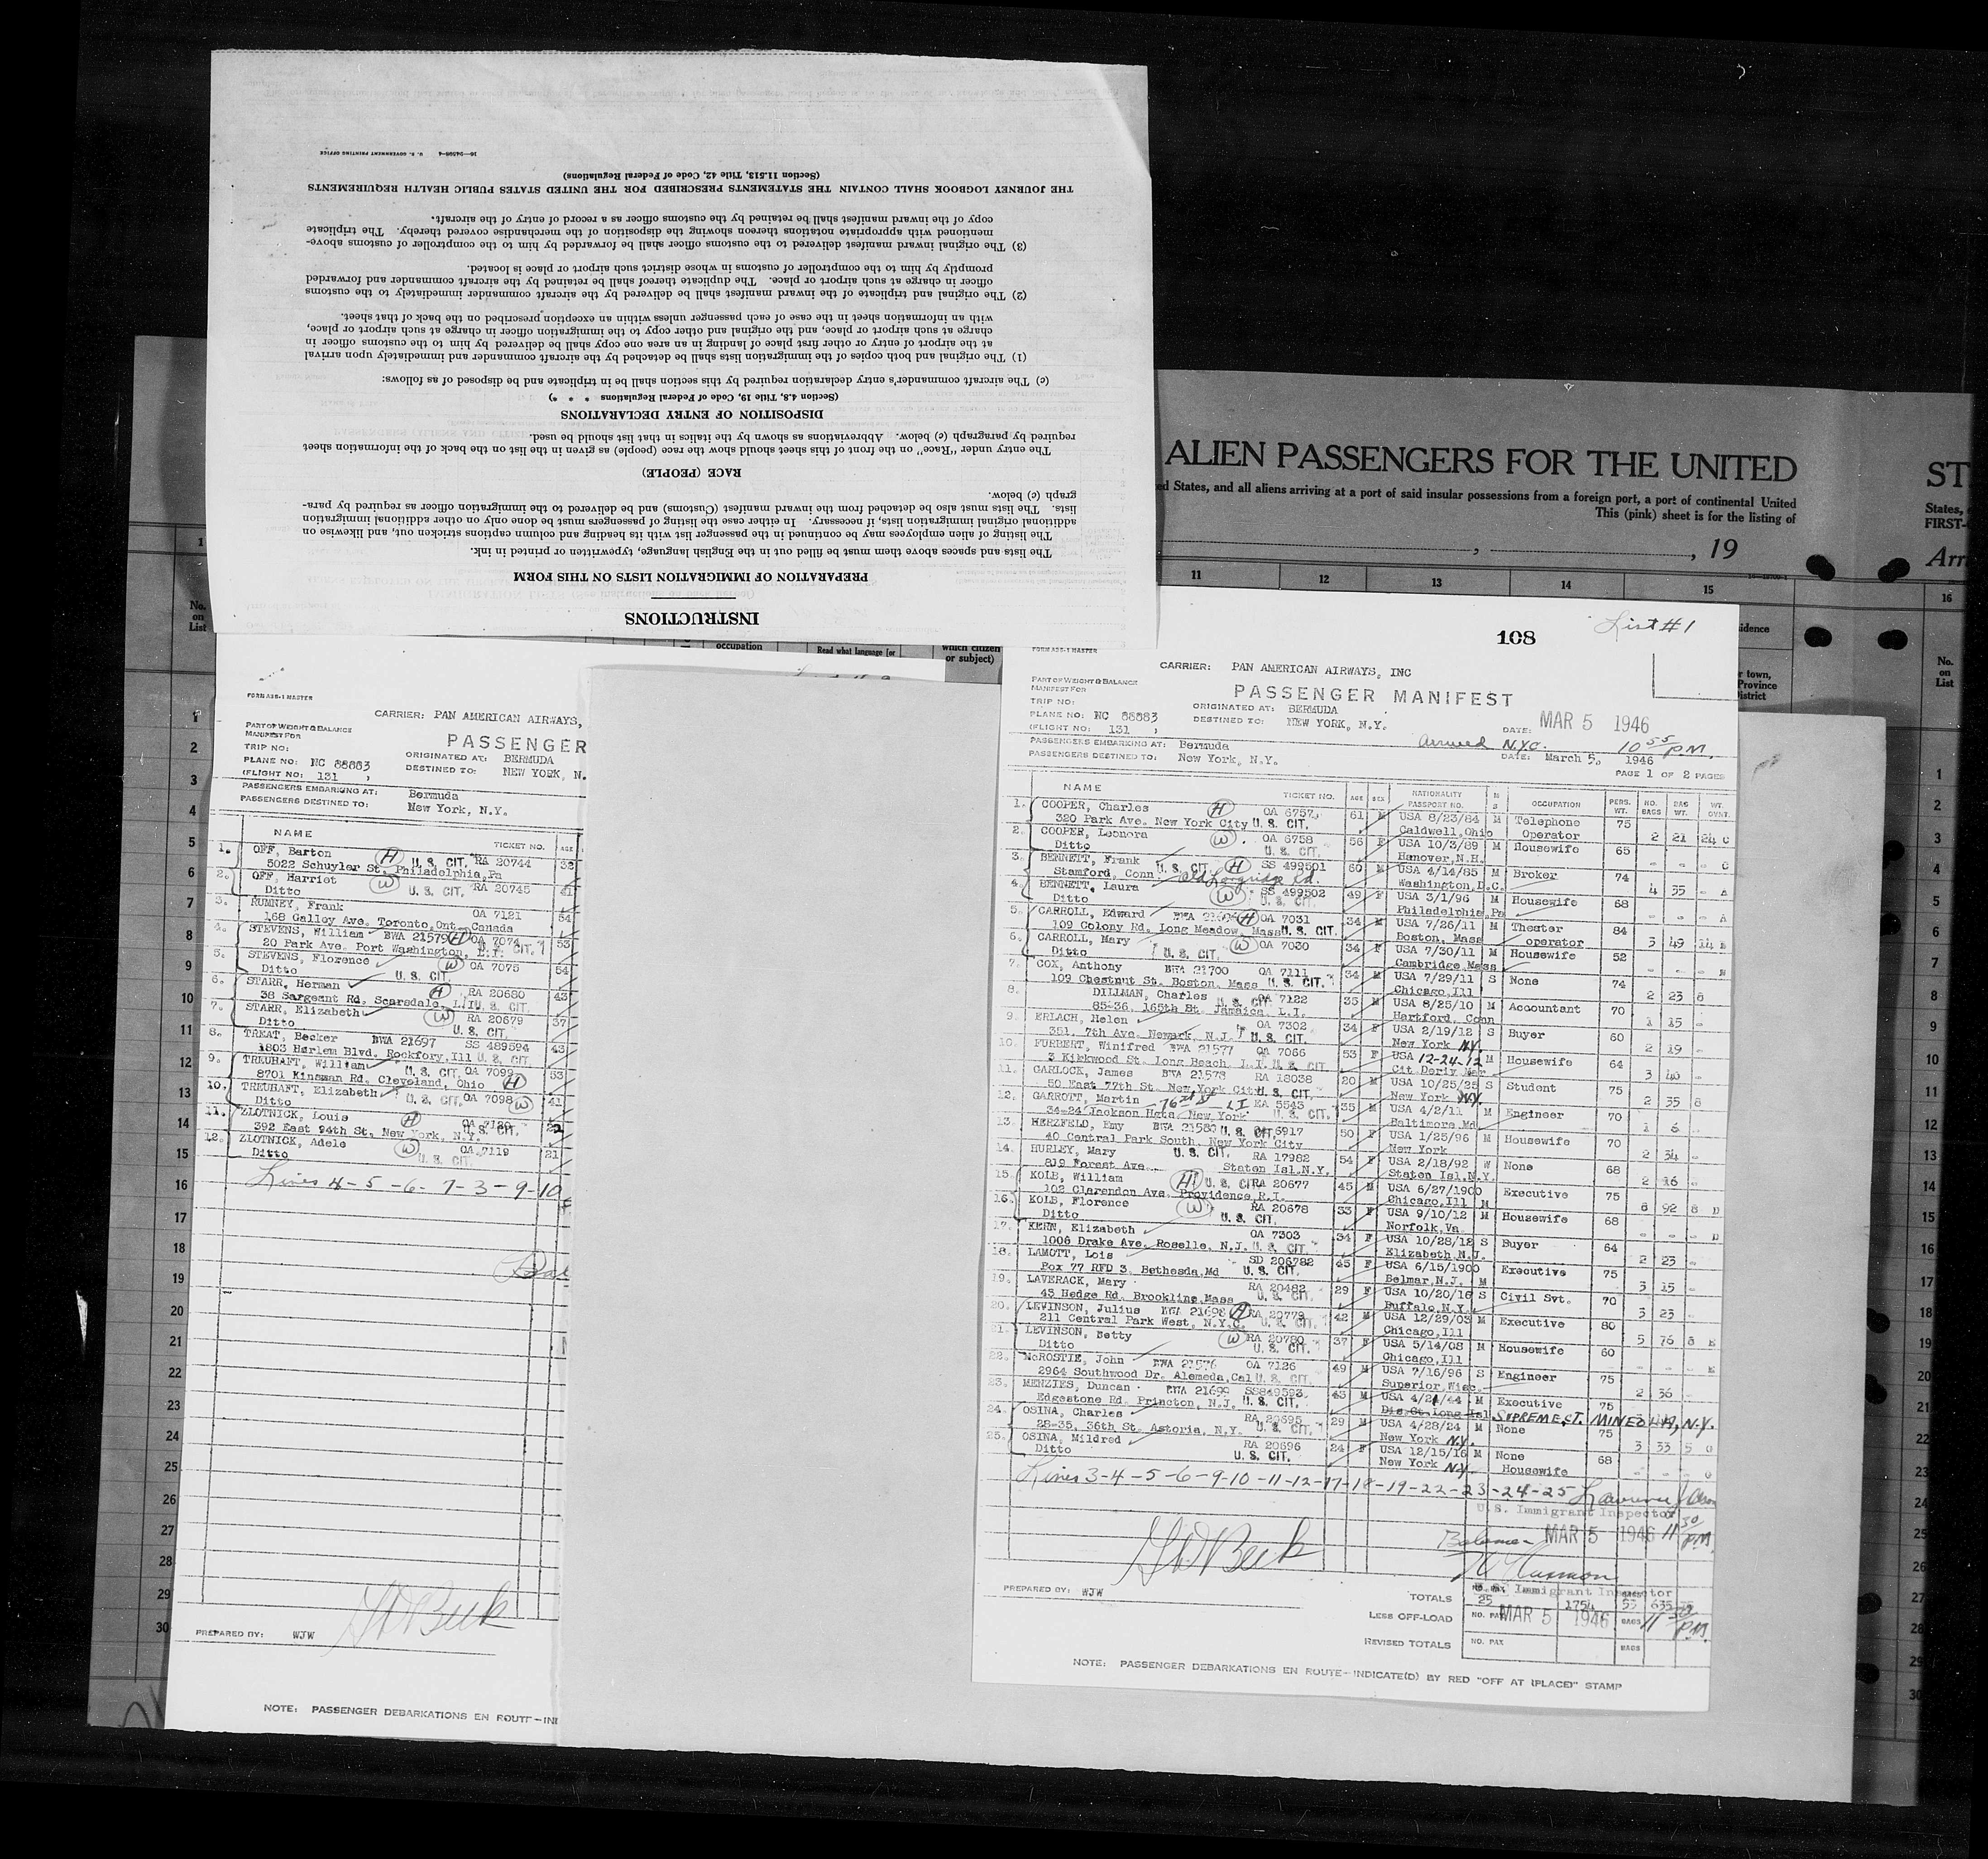 INSTRUCTIONS
PREPARATION OF IMMIGRATION LISTS ON THIS FORM
The lists and spaces above them must be filled out in the English language, typewritten or printed in ink.
The listing of alien employees may be continued in the passenger list with its heading and column captions stricken out, and likewise on
additional original immigration lists, if necessary. In either case the listing of passengers must be done only on other additional immigration
lists. The lists must also be detached from the inward manifest (Customs) and be delivered to the immigration officer as required by para-
graph (c) below.
RACE (PEOPLE)
The entry under "Race" on the front of this sheet should show the race (people) as given in the list on the back of the information sheet
required by paragraph (c) below. Abbreviations as shown by the italics in that list should be used.
DISPOSITION OF ENTRY DECLARATIONS
(Section 4.8, Title 19, Code of Federal Regulations * * *)
(c) The aircraft commander's entry declaration required by this section shall be in triplicate and be disposed of as follows:
(1) The original and both copies of the immigration lists shall be detached by the aircraft commander and immediately upon arrival
at the airport of entry or other first place of landing in an area one copy shall be delivered by him to the customs officer in
charge at such airport or place, and the original and other copy to the immigration officer in charge at such airport or place,
with an information sheet in the case of each passenger unless within an exception prescribed on the back of that sheet.
(2) The original and triplicate of the inward manifest shall be delivered by the aircraft commander immediately to the customs
officer in charge at such airport or place. The duplicate thereof shall be retained by the aircraft commander and forwarded
promptly by him to the comptroller of customs in whose district such airport or place is located.
(3) The original inward manifest delivered to the customs officer shall be forwarded by him to the comptroller of customs above-
mentioned with appropriate notations thereon showing the disposition of the merchandise covered thereby. The triplicate
copy of the inward manifest shall be retained by the customs officer as a record of entry of the aircraft.
THE JOURNEY LOGBOOK SHALL CONTAIN THE STATEMENTS PRESCRIBED FOR THE UNITED STATES PUBLIC HEALTH REQUIREMENTS
(Section 11.513, Title 42, Code of Federal Regulations)
U. S. GOVERNMENT PRINTING OFFICE
ALIEN PASSENGERS FOR THE UNITED
ed States, and all aliens arriving at a port of said insular possessions from a foreign port, a port of continental United
This (pink) sheet is for the listing of
, 19
11 12 13 14 15
ST
States,
FIRST-
Arr
16
No. on List
occupation
Read what language [or
which citizen
or subject)
idence
r town,
Province
istrict
FORM ASS-1 MASTER
CARRIER: PAN AMERICAN AIRWAYS,
PART OF WEIGHT & BALANCE
MANIFEST FOR
PASSENGER
TRIP NO:
PLANE NO: NC 88883
ORIGINATED AT: BERMUDA
(FLIGHT NO: 131 ,
DESTINED TO: NEW YORK, N.
PASSENGERS EMBARKING AT: Bermuda
PASSENGERS DESTINED TO: New York, N.Y.
NAME TICKET NO. AGE
1. OFF, Barton H U. S. CIT. RA 20744
5022 Schuyler St. Philadelphia,Pa
2. OFF, Harriet W RA 20745 41
Ditto U. S. CIT.
3. RUMNEY, Frank OA 7121 54
168 Galley Ave. Toronto,Ont. Canada
4. STEVENS, William BWA 21579 H OA 7074 53
20 Park Ave. Port Washington, L.I. CIT.
5. STEVENS, Florence W OA 7075 54
Ditto U. S. CIT
6. STARR, Herman H RA 20680 43
38 Sargeant Rd, Scarsdale, L.I U. S. CIT.
7. STARR, Elizabeth W RA 20679 37
Ditto U. S. CIT.
8. TREAT, Becker BWA 21697 SS 489594 43
1803 Harlem Blvd. Rockfory,Ill U. S. CIT.
9. TREUHAFT, William U. S. CIT. OA 7099 53
8701 Kinsman Rd. Cleveland, Ohio H
10. TREUHAFT, Elizabeth U. S. CIT. OA 7098 W 41
Ditto
11. ZLOTNICK, Louis H OA 7120
392 East 94th St. New York, N.Y. U. S. CIT.
12. ZLOTNICK, Adele W OA 7119 21
Ditto U. S. CIT.
Lines 4-5-6-7-8-9-10
Bal
PREPARED BY: WJW
NOTE: PASSENGER DEBARKATIONS EN ROUTE-IN
108
List #1
FORM ASS-1 MASTER
CARRIER: PAN AMERICAN AIRWAYS, INC
PART OF WEIGHT & BALANCE
MANIFEST FOR
PASSENGER MANIFEST
TRIP NO:
PLANE NO: NC 88883
ORIGINATED AT: BERMUDA
(FLIGHT NO: 131 ,
DESTINED TO: NEW YORK, N.Y.
DATE: MAR 5 1946
PASSENGERS EMBARKING AT: Bermuda
Arrived N.Y.C. 10 55 PM.
PASSENGERS DESTINED TO: New York, N.Y.
DATE: March 5, 1946
PAGE 1 OF 2 PAGES
NAME TICKET NO. AGE SEX NATIONALITY PASSPORT NO. M S OCCUPATION PERS. WT. NO. BAGS BAG WT. WT. OVNT.
1. COOPER, Charles H OA 6757 61 M USA 8/23/84 M Telephone 75
320 Park Ave. New York City U. S. CIT. Caldwell,Ohio Operator 2 21 24 C
2. COOPER, Leonora W OA 6758 56 F USA 10/3/89 M Housewife 65
Ditto U. S. CIT. Hanover,N.H. - - - C
3. BENNETT, Frank U. S. CIT. H SS 499501 60 M USA 4/14/85 M Broker 74
Stamford, Conn Old Longridge Rd. Washington,D.C. 4 35 - A
4. BENNETT, Laura W SS 499502 49 F USA 3/1/96 M Housewife 68
Ditto U. S. CIT. Philadelphia,Pa - - - A
5. CARROLL, Edward BWA H OA 7031 34 M USA 7/26/11 M Theater 84
109 Colony Rd. Long Meadow, Mass U. S. CIT. Boston, Mass operator 3 49 14 B
6. CARROLL, Mary W OA 7030 34 F USA 7/30/11 M Housewife 52
Ditto U. S. CIT. Cambridge,Mass - - -
7. COX, Anthony BWA 21700 OA 7111 34 M USA 7/29/11 S None 74
109 Chestnut St. Boston, Mass U. S. CIT. Chicago,Ill 2 23 8
8. DILLMAN, Charles OA 7122 35 M USA 8/25/10 M Accountant 70
85-36, 165th St. Jamaica, L.I. U. S. CIT. Hartford, Conn 1 15 -
9. ERLACH, Helen OA 7302 34 F USA 2/19/12 S Buyer 60
351, 7th Ave. Newark, N.J. U. S. CIT. New York N.Y. 2 19 -
10. FURBERT, Winifred BWA 21577 OA 7066 53 F USA 12-24-12 M Housewife 64
3 Kirkwood St. Long Beach, L.I. U. S. CIT Cit Deriv Mar 3 40 -
11. GARLOCK, James BWA 21578 RA 18038 20 M USA 10/25/25 S Student 75
50 East 77th St. New York City U. S. CIT. New York N.Y. 2 35 8
12. GARROTT, Martin 76th St LI EA 5543 35 M USA 4/2/11 M Engineer 70
34-24 Jackson Hgts New York U. S. CIT. Baltimore,Md 1 6 -
13. HERZFELD, Emy BWA 21580 OA 6917 50 F USA 1/25/96 M Housewife 70
40 Central Park South, New York City U. S. CIT. New York 2 34 -
14. HURLEY, Mary U. S. CIT. RA 17982 54 F USA 2/18/92 W None 68
819 Forest Ave. Staten Isl.N.Y. Staten Isl.N.Y. 2 16 -
15. KOLB, William H U. S. CIT RA 20677 45 M USA 6/27/1900 Executive 75
102 Clarendon Ave. Providence,R.I. Chicago,Ill M 6 92 8 D
16. KOLB, Florence W RA 20678 33 F USA 9/10/12 M Housewife 68
Ditto U. S. CIT. Norfolk,Va. - - - D
17. KERN, Elizabeth OA 7303 34 F USA 10/28/12 S Buyer 64
1006 Drake Ave. Roselle, N.J. U. S. CIT. Elizabeth,N.J. 2 23 -
18. LAMOTT, Lois SD 206782 45 F USA 6/15/1900 Executive 75
Box 77 RFD 3, Bethesda,Md U. S. CIT. Belmar,N.J. M 3 15 -
19. LAVERACK, Mary RA 20482 29 F USA 10/20/16 S Civil Svt. 70
43 Hedge Rd. Brookline,Mass U. S. CIT. Buffalo,N.Y. 3 23 -
20. LEVINSON, Julius BWA 21698 H RA 20779 42 M USA 12/29/03 M Executive 80
211 Central Park West, N.Y.C. U. S. CIT. Chicago,Ill 5 76 8 E
21. LEVINSON, Betty W RA 20780 37 F USA 5/14/08 M Housewife 60
Ditto U. S. CIT. Chicago,Ill - - - E
22. McROSTIE, John BWA 21576 OA 7126 49 M USA 7/16/96 S Engineer 75
2964 Southwood Dr. Alemeda,Cal U. S. CIT. Superior,Wisc. 2 36 -
23. MENZIES, Duncan BWA 21699 SS849593 43 M USA 4/21/44 M Executive 75
Edgestone Rd. Princton, N.J. U. S. CIT. Dis.Ct.Long Isl SUPREME CT. MINEOLA, N.Y.
24. OSINA, Charles RA 20695 29 M USA 4/28/24 M None 75
28-35, 36th St. Astoria, N.Y. U. S. CIT. New York N.Y. 3 33 5 O
25. OSINA, Mildred RA 20696 24 F USA 12/15/16 M None 68
Ditto U. S. CIT. New York N.Y. Housewife - - - O
Lines 3-4-5-6-9-10-11-12-17-18-19-22-23-24-25
U.S. Immigrant Inspector
Balance MAR 5 1946 11 30 PM.
U.S. Immigrant Inspector
PREPARED BY: WJW
TOTALS NO. PAX 25 1754 BAGS 55 635
LESS OFF-LOAD NO. PAX MAR 5 1946 BAGS 11 30 P.M.
REVISED TOTALS NO. PAX BAGS
NOTE: PASSENGER DEBARKATIONS EN ROUTE-INDICATE(D) BY RED "OFF AT (PLACE)" STAMP